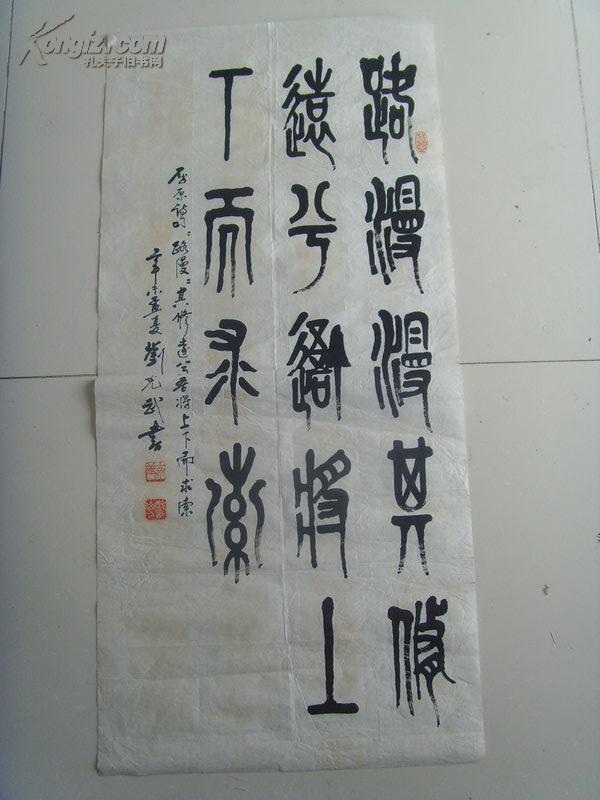 路漫漫其修
遠兮吾將上
下而求索
屈原詩句:路漫:其修遠兮吾将上下而求索
辛未孟夏劉
書
Kongfz.com
孔夫子旧书网